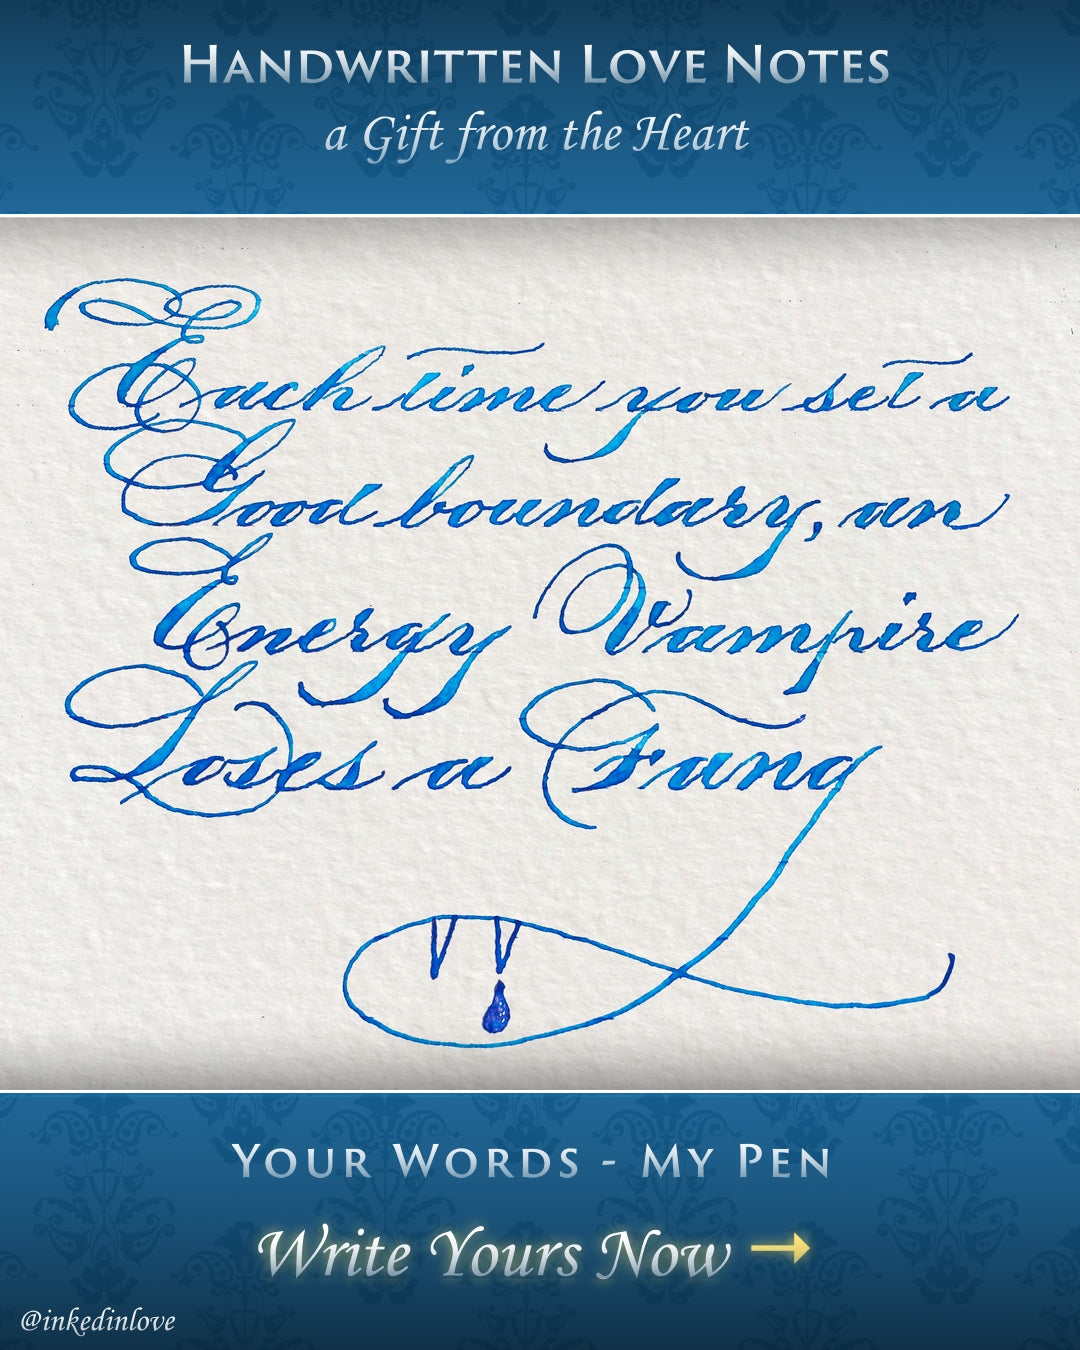 Handwritten Love Notes
a Gift from the Heart
Each time you set a
Good boundary, an
Energy Vampire
Loses a Fang
Your Words - My Pen
Write Yours Now →
@inkedinlove